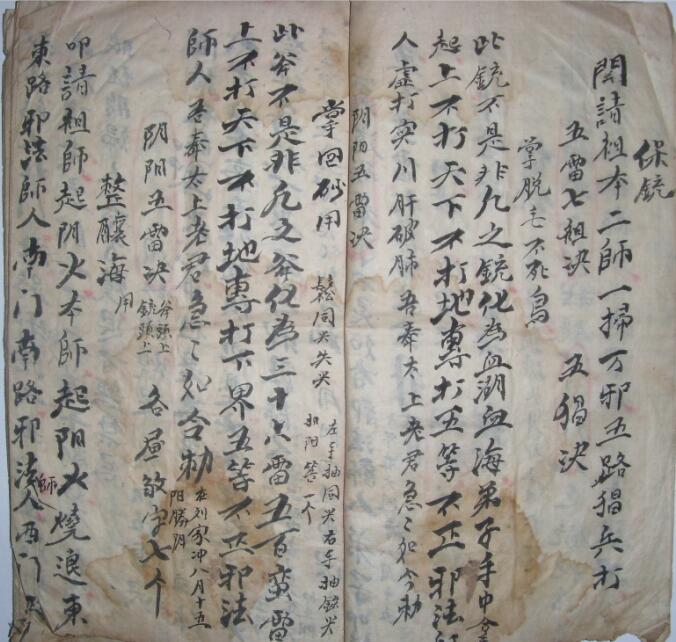 保銃
開請祖本二師一掃万邪五路猖兵打
五雷七祖決 五猖決
掌脱毛不死鳥
此銃不是非凡之銃化為血湖血海弟子手中
起上不打天下不打地專打五等不正邪法
人虚打实川肝破肺 吾奉太上老君急々如令勅
阴阳五雷决
掌回砂用 左手抽同尖右手抽鉄尖
此斧不是非凡之斧化為三十六雷五百蛮雷
上不打天下不打地專打下界五等不正邪法
師人吾奉太上老君急々如令勅 在刘家冲八月十五
阴阳五雷决 斧頭上 銃頭上 各晝敏字七个
整釀海用
叩請祖師起阴火本師起阳火燒退東
東路邪法師人南门南路邪法師人西门